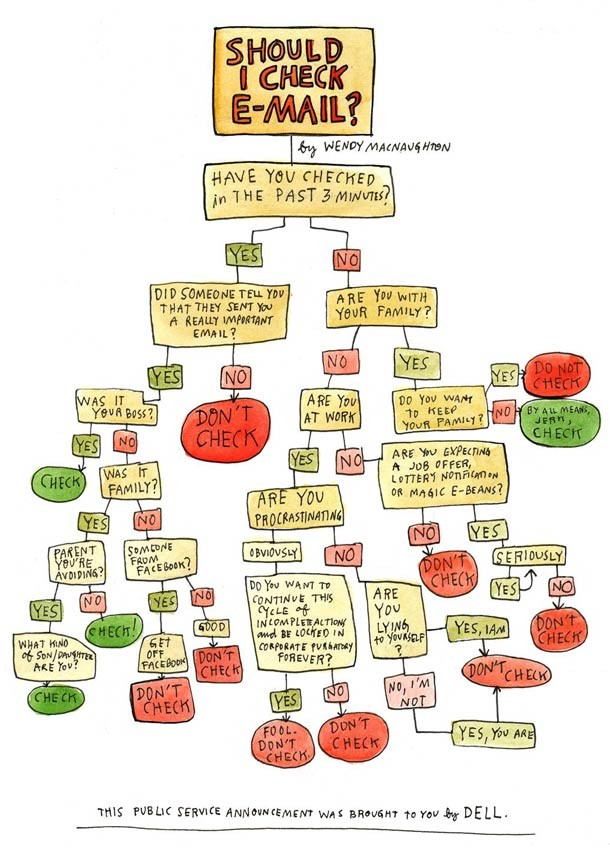 SHOULD
I CHECK
E-MAIL?
by WENDY MACNAUGHTON
HAVE YOU CHECKED
in THE PAST 3 MINUTES?
YES
NO
DID SOMEONE TELL YOU
THAT THEY SENT YOU
A REALLY IMPORTANT
EMAIL?
ARE YOU WITH
YOUR FAMILY?
YES
NO
NO
YES
WAS IT
YOUR BOSS?
DON'T
CHECK
ARE YOU
AT WORK
DO YOU WANT
TO KEEP
YOUR FAMILY?
YES
DO NOT
CHECK
NO
BY ALL MEANS,
JERK,
CHECK
YES
NO
CHECK
WAS IT
FAMILY?
YES
NO
ARE YOU EXPECTING
A JOB OFFER,
LOTTERY NOTIFICATION
OR MAGIC E-BEANS?
YES
NO
ARE YOU
PROCRASTINATING
NO
YES
PARENT
YOU'RE
AVOIDING?
SOMEONE
FROM
FACEBOOK?
OBVIOUSLY
NO
DON'T
CHECK
SERIOUSLY
YES
NO
DON'T
CHECK
YES
NO
CHECK!
YES
NO
GOOD
DON'T
CHECK
WHAT KIND
of SON/DAUGHTER
ARE YOU?
CHECK
GET
OFF
FACEBOOK
DON'T
CHECK
DO YOU WANT to
CONTINUE THIS
CYCLE of
INCOMPLETE ACTIONS
and BE LOCKED IN
CORPORATE PURGATORY
FOREVER?
YES
NO
FOOL.
DON'T
CHECK.
DON'T
CHECK
ARE
YOU
LYING
to YOURSELF
?
YES, I AM
DON'T CHECK
NO, I'M
NOT
YES, YOU ARE
THIS PUBLIC SERVICE ANNOUNCEMENT WAS BROUGHT to YOU by DELL.